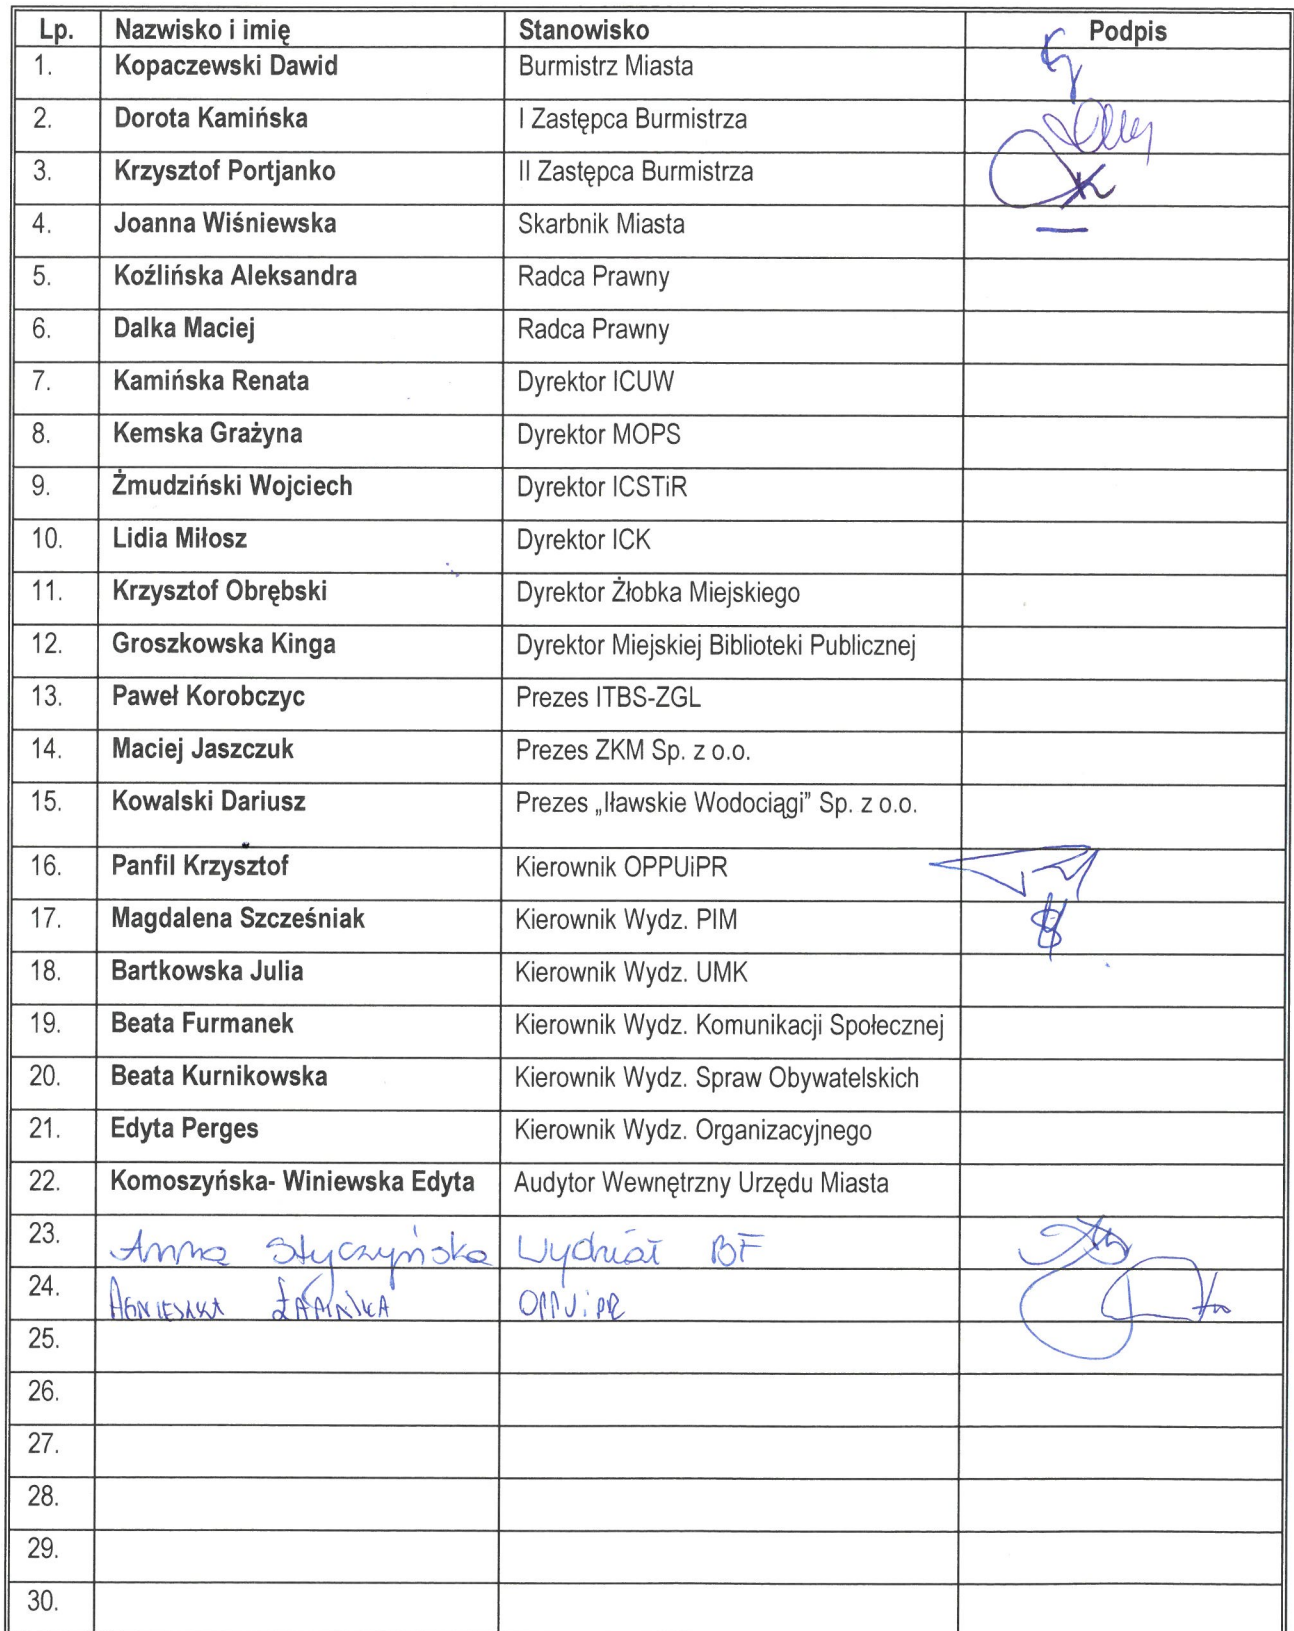 Lp. Nazwisko i imię Stanowisko Podpis
1. Kopaczewski Dawid Burmistrz Miasta
2. Dorota Kamińska I Zastępca Burmistrza
3. Krzysztof Portjanko II Zastępca Burmistrza
4. Joanna Wiśniewska Skarbnik Miasta
5. Koźlińska Aleksandra Radca Prawny
6. Dalka Maciej Radca Prawny
7. Kamińska Renata Dyrektor ICUW
8. Kemska Grażyna Dyrektor MOPS
9. Żmudziński Wojciech Dyrektor ICSTiR
10. Lidia Miłosz Dyrektor ICK
11. Krzysztof Obrębski Dyrektor Żłobka Miejskiego
12. Groszkowska Kinga Dyrektor Miejskiej Biblioteki Publicznej
13. Paweł Korobczyc Prezes ITBS-ZGL
14. Maciej Jaszczuk Prezes ZKM Sp. z o.o.
15. Kowalski Dariusz Prezes „Iławskie Wodociągi” Sp. z o.o.
16. Panfil Krzysztof Kierownik OPPUiPR
17. Magdalena Szcześniak Kierownik Wydz. PIM
18. Bartkowska Julia Kierownik Wydz. UMK
19. Beata Furmanek Kierownik Wydz. Komunikacji Społecznej
20. Beata Kurnikowska Kierownik Wydz. Spraw Obywatelskich
21. Edyta Perges Kierownik Wydz. Organizacyjnego
22. Komoszyńska- Winiewska Edyta Audytor Wewnętrzny Urzędu Miasta
23. Anna Styczyńska Wydział BF
24. AGNIESZKA OPPUiPR
25.
26.
27.
28.
29.
30.